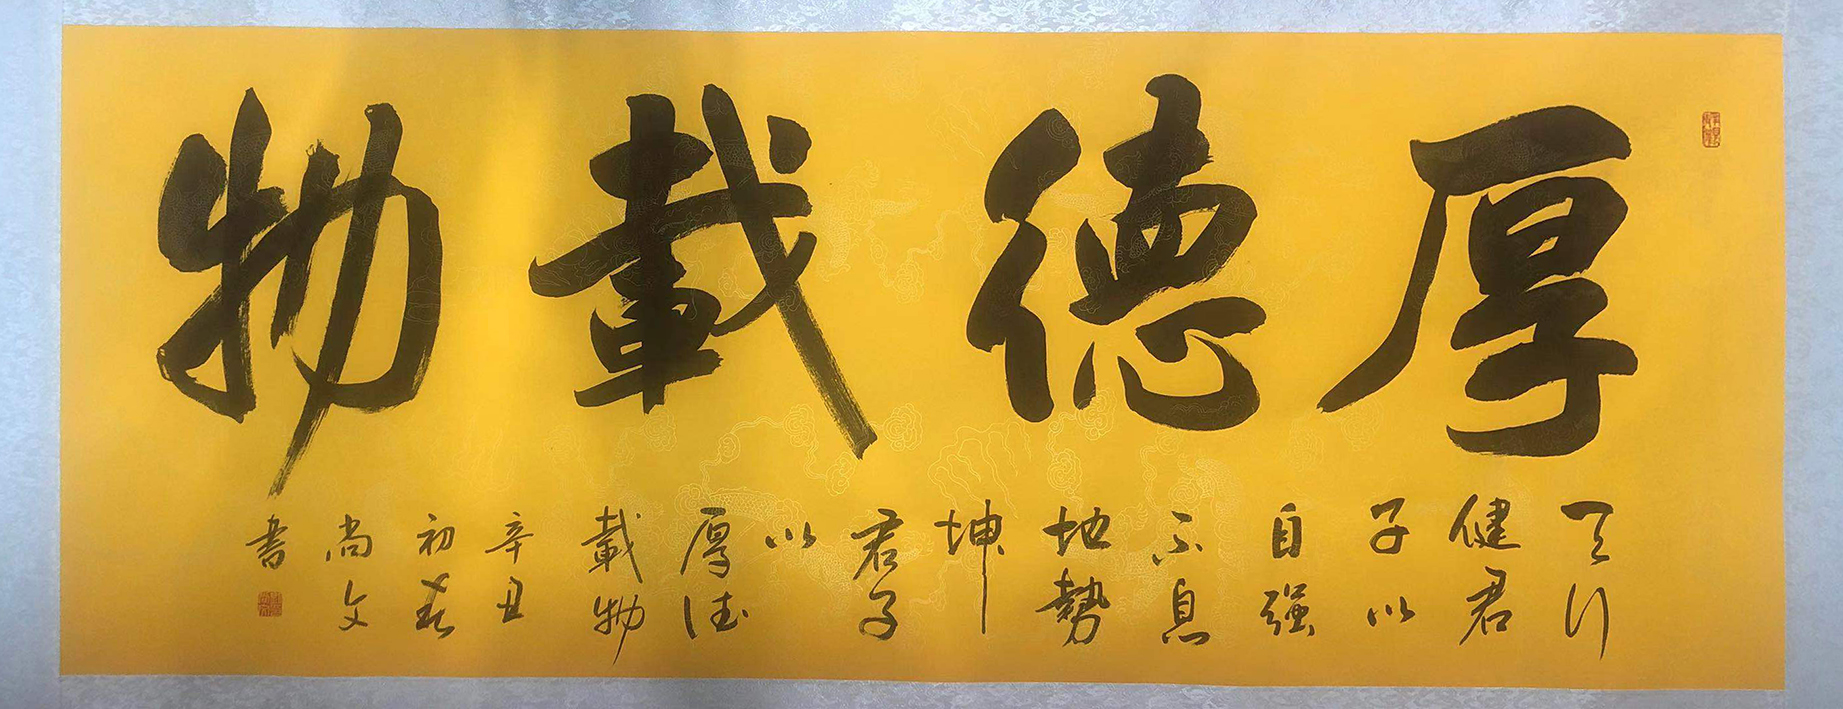 厚德載物
天行
健君
子以
自强
不息
地勢
坤
君子
以
厚德
載物
辛丑
初春
尚文
書